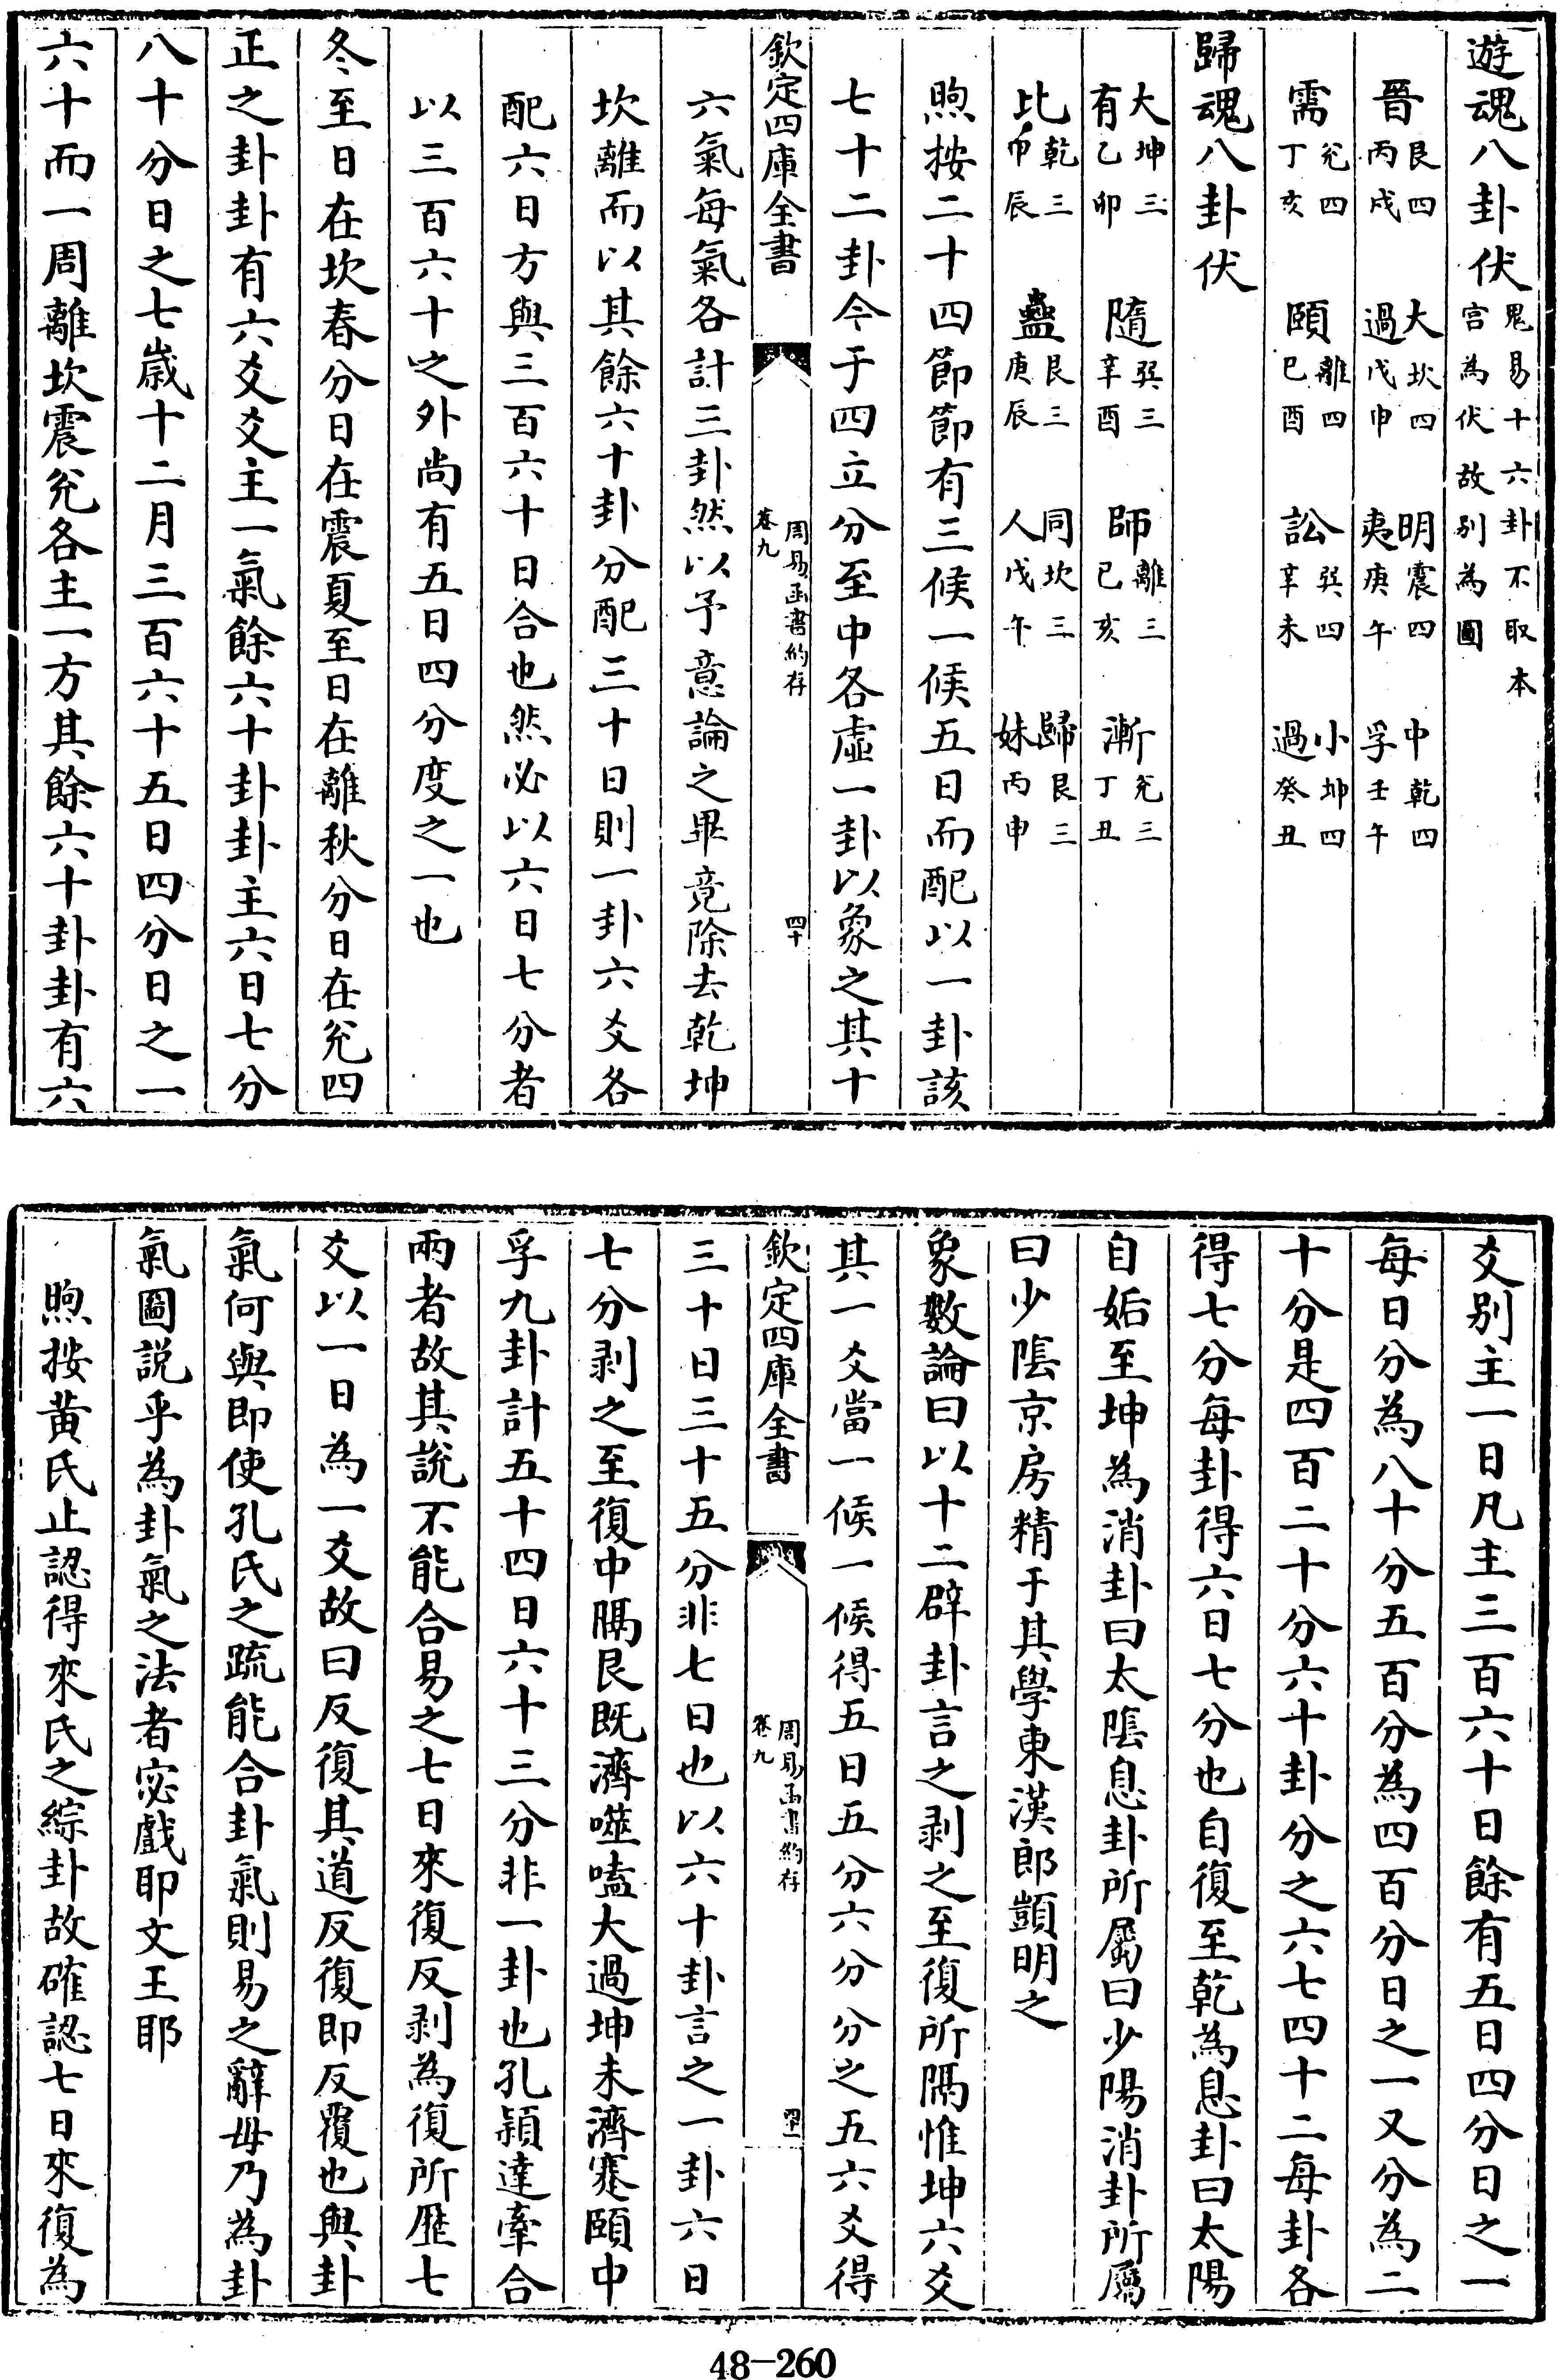 遊魂八卦伏鬼易十六卦不取本宫為伏故别為圖
晉艮四丙戌 大過坎四戊申 明夷震四庚午 中孚乾四壬午
需兊四丁亥 頤離四巳酉 訟巽四辛未 小過坤四癸丑
歸魂八卦伏
大有坤三乙卯 隨巽三辛酉 師離三巳亥 漸兊三丁丑
比乾三甲辰 蠱艮三庚辰 同人坎三戊午 歸妹艮三丙申
煦按二十四節節有三候一候五日而配以一卦該
七十二卦今于四立分至中各虛一卦以象之其十
欽定四庫全書 周易函書約存 卷九 四十
六氣每氣各計三卦然以予意論之畢竟除去乾坤
坎離而以其餘六十卦分配三十日則一卦六爻各
配六日方與三百六十日合也然必以六日七分者
以三百六十之外尚有五日四分度之一也
冬至日在坎春分日在震夏至日在離秋分日在兊四
正之卦卦有六爻爻主一氣餘六十卦卦主六日七分
八十分日之七歲十二月三百六十五日四分日之一
六十而一周離坎震兊各主一方其餘六十卦卦有六
爻别主一日凡主三百六十日餘有五日四分日之一
每日分為八十分五百分為四百分日之一又分為二
十分是四百二十分六十卦分之六七四十二每卦各
得七分每卦得六日七分也自復至乾為息卦曰太陽
自姤至坤為消卦曰太陰息卦所屬曰少陽消卦所屬
曰少陰京房精于其學東漢郎顗明之
象數論曰以十二辟卦言之剥之至復所隅惟坤六爻
其一爻當一候一候得五日五分六分分之五六爻得
欽定四庫全書 周易函書約存 卷九 四十一
三十日三十五分非七日也以六十卦言之一卦六日
七分剥之至復中隅艮既濟噬嗑大過坤未濟蹇頤中
孚九卦計五十四日六十三分非一卦也孔穎達牽合
兩者故其說不能合易之七日來復反剥為復所歷七
爻以一日為一爻故曰反復其道反復即反覆也與卦
氣何與即使孔氏之疏能合卦氣則易之辭毋乃為卦
氣圖説乎為卦氣之法者宓戲耶文王耶
煦按黄氏止認得來氏之綜卦故確認七日來復為
48-260